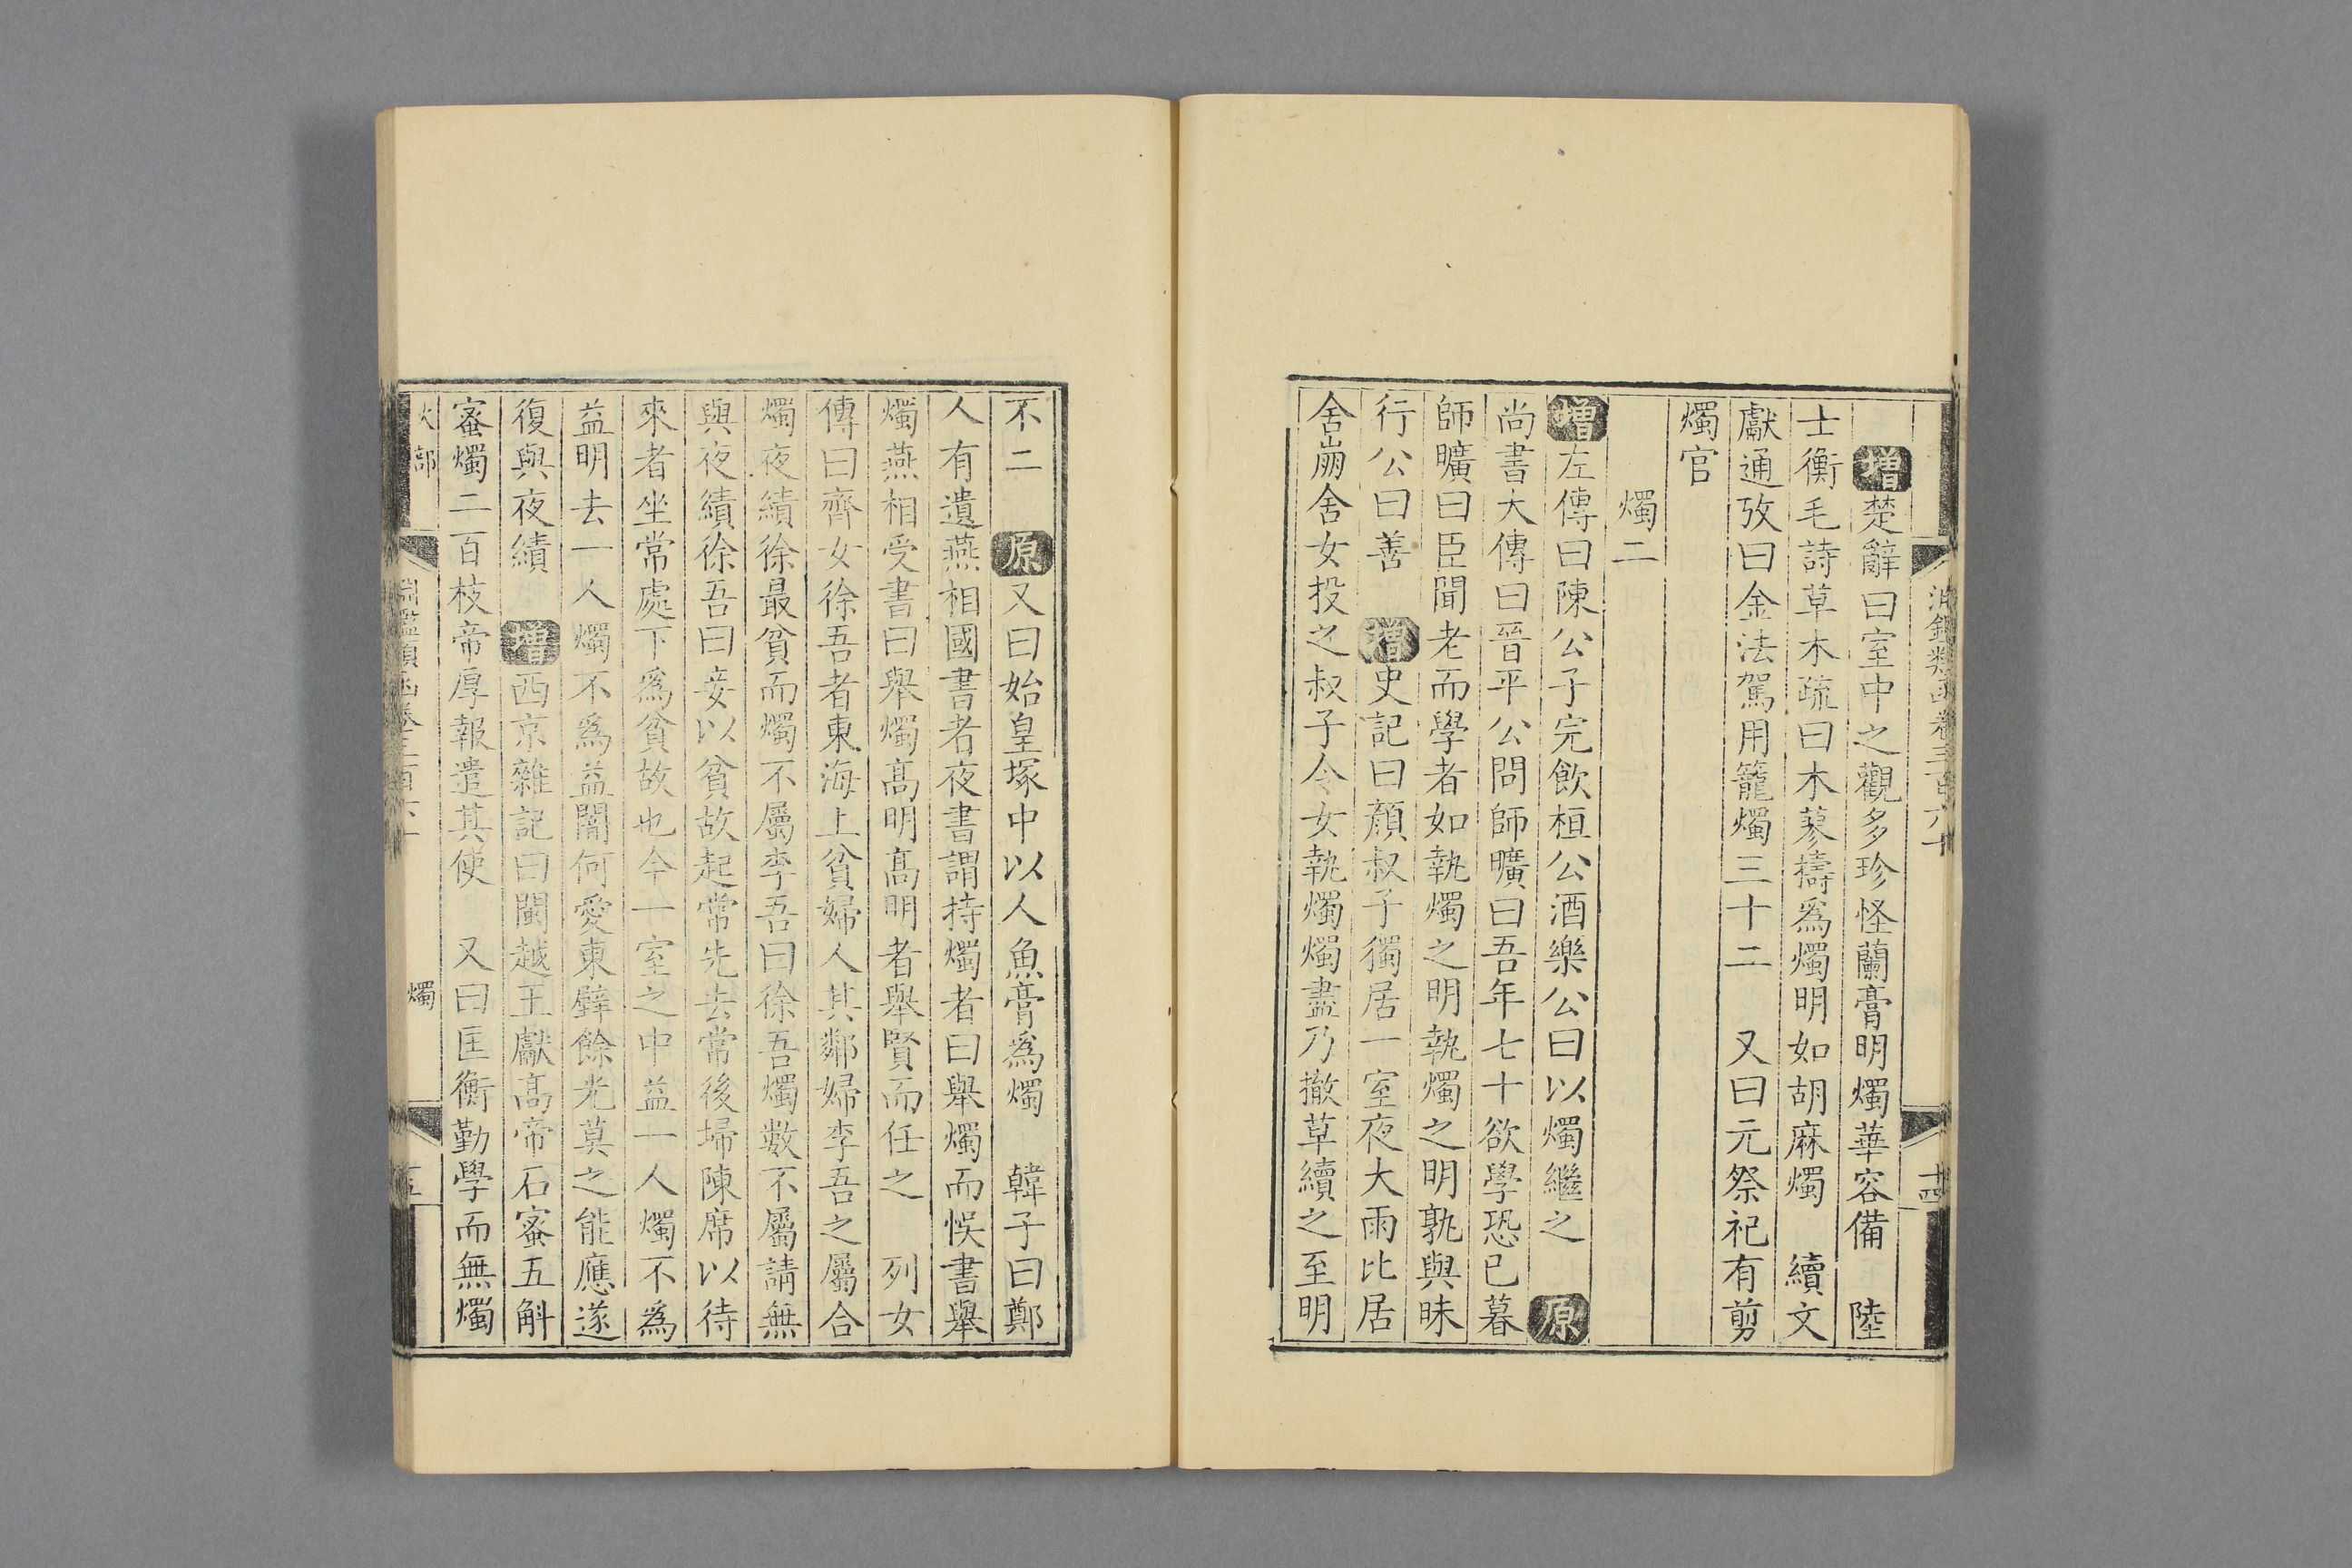 淵鑑類函卷三百六十
十四
增楚辭曰室中之觀多珍怪蘭膏明燭華容備 陸
士衡毛詩草木疏曰木蓼擣爲燭明如胡麻燭 續文
獻通攷曰金法駕用籠燭三十二 又曰元祭祀有剪
燭官
燭二
增左傳曰陳公子完飲桓公酒樂公曰以燭繼之 原
尚書大傳曰晉平公問師曠曰吾年七十欲學恐已暮
師曠曰臣聞老而學者如執燭之明執燭之明孰與昧
行公曰善 增史記曰顏叔子獨居一室夜大雨比居
舍崩舍女投之叔子令女執燭燭盡乃撤草續之至明
不二 原又曰始皇塚中以人魚膏爲燭 韓子曰鄭
人有遺燕相國書者夜書謂持燭者曰舉燭而悞書舉
燭燕相受書曰舉燭高明高明者舉賢而任之 列女
傳曰齊女徐吾者東海上貧婦人其鄰婦李吾之屬合
燭夜績徐最貧而燭不屬李吾曰徐吾燭數不屬請無
與夜績徐吾曰妾以貧故起常先去常後埽陳席以待
來者坐常處下爲貧故也今一室之中益一人燭不爲
益明去一人燭不爲益闇何愛東壁餘光莫之能應遂
復與夜績 增西京雜記曰閩越王獻高帝石蜜五斛
蜜燭二百枝帝厚報遣其使 又曰匡衡勤學而無燭
火部
淵鑑類函卷三百六十
燭